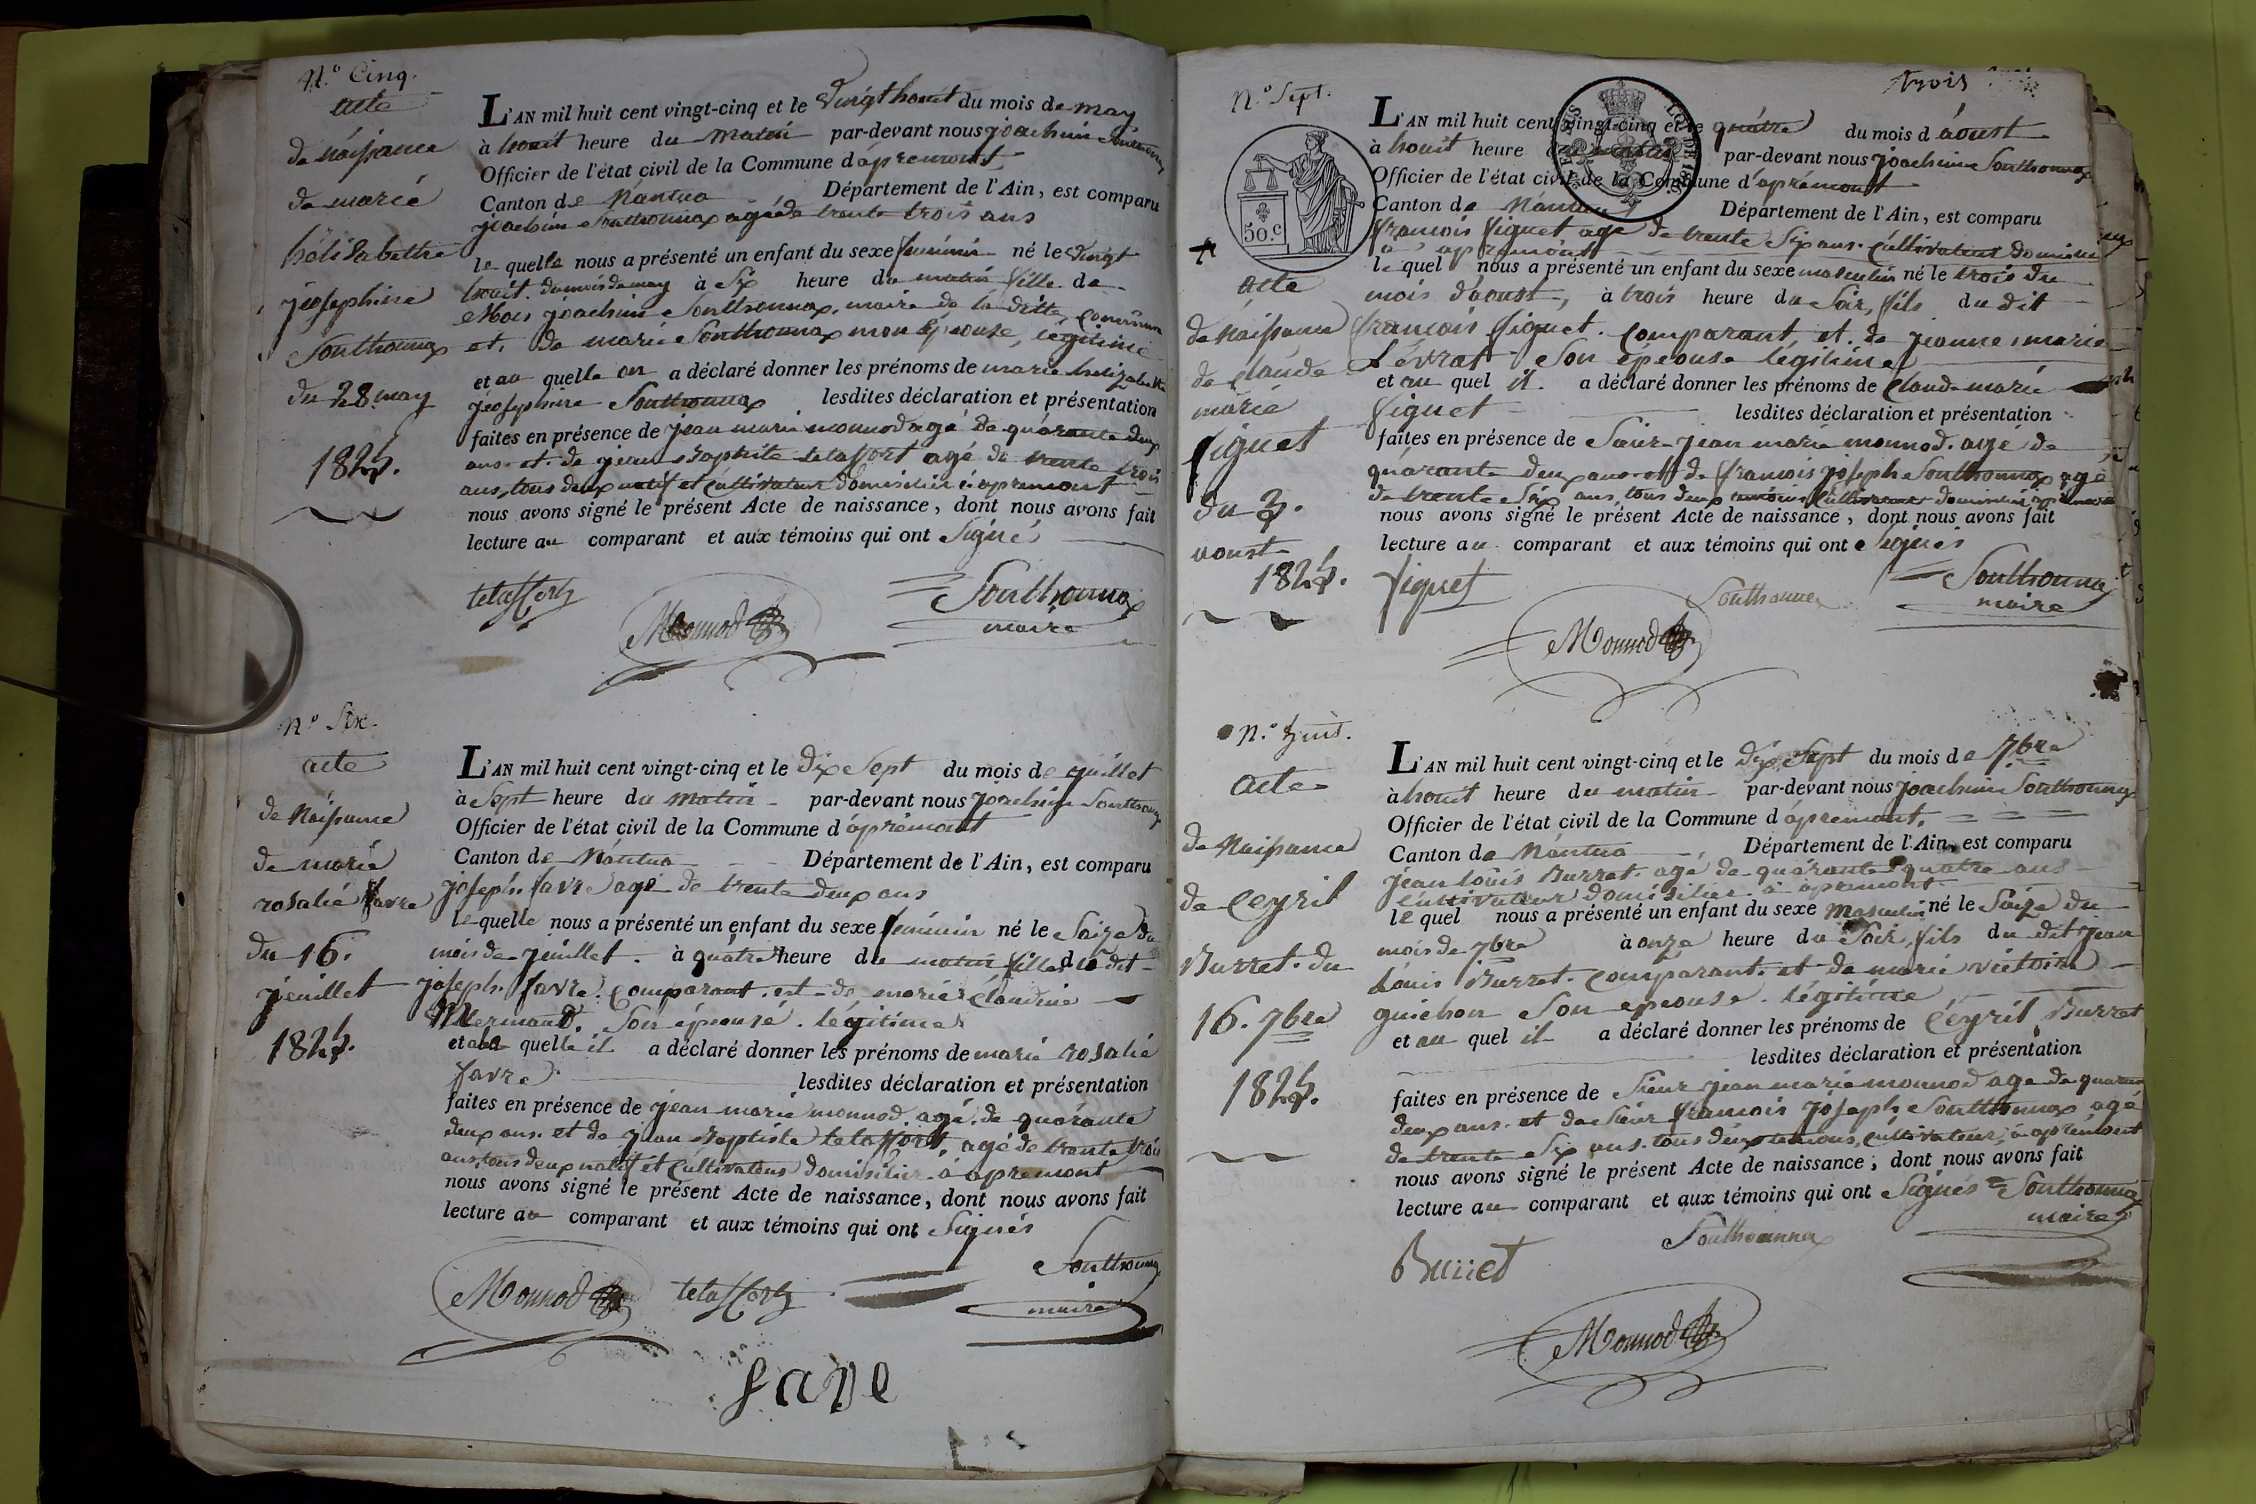 N.° Cinq.
acte
de náissance
de marie
hélisabethe
josephine
Southonnax
du 28. may
1825.
L'AN mil huit cent vingt-cinq et le vingt houit du mois de may
à houit heure du matin par-devant nous joachim Southonnax
Officier de l'état civil de la Commune d'ápremont
Canton de Nántua Département de l'Ain, est comparu
joachim Southonnax agé de trente trois ans
le quelle nous a présenté un enfant du sexe feminin né le vingt
houit. du mois de may à six heure du matin fille de
Mois joachim Southonnax, maire de la ditte commune
et, de marie Southonnax mon épouse, légitime
et au quelle on a déclaré donner les prénoms de marie helizabethe
josephine Southonnax lesdites déclaration et présentation
faites en présence de jean marie monnod agé de quárante deux
ans. et. de jean Baptiste telaffort agé de trente trois
ans, tous deux natif et cúltivateur domicilié á apremont
nous avons signé le présent Acte de naissance, dont nous avons fait
lecture au comparant et aux témoins qui ont Signé
telaffort
Monnod
Southonnax
maire
N.° Six.
acte
de Náissance
de marie
rosalie favre
du 16.
jeuillet
1825.
L'AN mil huit cent vingt-cinq et le dix sept du mois de juillet
à Sept heure du matin par-devant nous joachim Southonnax
Officier de l'état civil de la Commune d'ápremont
Canton de Nántua Département de l'Ain, est comparu
joseph. favre agé de trente deux ans
le quelle nous a présenté un enfant du sexe feminin né le Saize du
mois de juillet à quátre heure du matin fille du dit
joseph. favre. comparant. et de marie claudine
Mermand. Son épeouse. légitime
et au quelle il a déclaré donner les prénoms de marie rosalie
favre lesdites déclaration et présentation
faites en présence de jean marie monnod agé. de quárante
deux ans. et de jean Baptiste telaffort, agé de trente trois
ans, tous deux natif et cúltivateur domicilié á apremont
nous avons signé le présent Acte de naissance, dont nous avons fait
lecture au comparant et aux témoins qui ont Signés
Monnod
telaffort
Southonnax
maire
fave
trois
N.° Sept.
50.c
acte
de Naissance
de claude
márie
figuet
du 3.
aoust
1825.
L'AN mil huit cent vingt-cinq et le quátre du mois d'áoust
à houit heure du matin par-devant nous joachim Southonnax
Officier de l'état civil de la Commune d'aprémont
Canton de Nántua Département de l'Ain, est comparu
francois figuet agé de trente six ans. cúltivateur domicilié
á apremont
le quel nous a présenté un enfant du sexe masculin né le trois du
mois d'aoust, à trois heure du Soir, fils du dit
francois figuet. comparant, et. de jeanne marie
Lévrat Son épeouse légitime
et au quel il a déclaré donner les prénoms de claude marie
figuet lesdites déclaration et présentation
faites en présence de Sieur jean marie monnod. agé de
quárante deux ans et de francois joseph Southonnax agé
de trente six ans, tous deux temoins, cúltivateur domicilié apremont
nous avons signé le présent Acte de naissance, dont nous avons fait
lecture au comparant et aux témoins qui ont Signés
figuet
Southonnax
Southonnax
maire
Monnod
N.° huit.
acte
de Naissance
de Ceyril
Burret. du
16. 7bre
1825.
L'AN mil huit cent vingt-cinq et le dix Sept du mois de 7bre
à houit heure du matin par-devant nous joachim Southonnax
Officier de l'état civil de la Commune d'ápremont.
Canton de Nántua Département de l'Ain, est comparu
jean loúis Burret. agé de quárante quatre ans
cultivateur domicilier á apremont
le quel nous a présenté un enfant du sexe masculin né le Saize du
mois de 7bre à onze heure du Soir, fils du dit jean
Loúis Burret. comparant. et de marie victoire
guichon Son epeouse. légitime
et au quel il a déclaré donner les prénoms de Céyril Burret
lesdites déclaration et présentation
faites en présence de Sieur jean marie monnod agé de quarante
deux ans. et de Sieur francois joseph Southonnax agé
de trente Six ans. tous deux temoins, cultivateur, á apremont
nous avons signé le présent Acte de naissance; dont nous avons fait
lecture au comparant et aux témoins qui ont Signés Southonnax
maire
Southonnax
Burret
Monnod